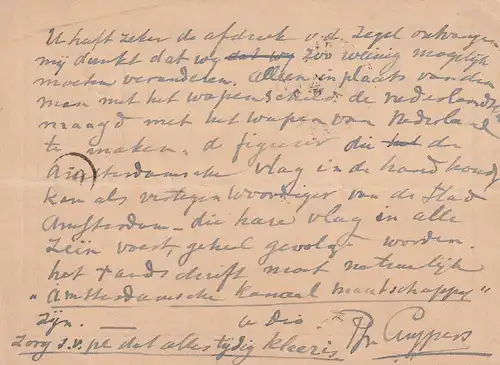 U heeft zeker de afdruk v.d. zegel ontvangen
mij dunkt dat wy dat wy zoo weinig mogelijk
moeten veranderen. Alleen in plaats van den
man met het wapenschild de nederlandsche
maagd met het wapen van Nederland
te maken. de figuur die het de
Amsterdamsche vlag in de hand houdt
kan als vertegenwoordiger van de Stad
Amsterdam – die hare vlag in alle
voert, geheel gevolgd worden.
het randschrift moet natuurlijk
"Amsterdamsche kanaal maatschappy"
zijn. — u
zorg s.v.pl dat alles tydig klaar is Cuypers